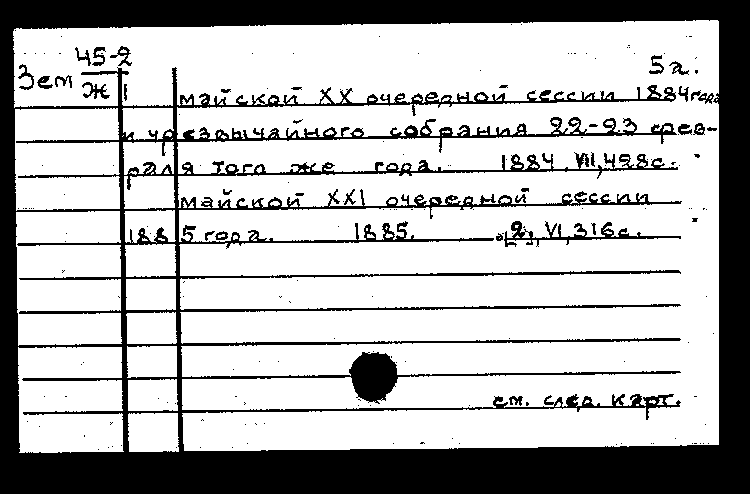 45-2
Зем Ж1
5а.
майской XX очередной сессии 1884 года
и чрезвычайного собрания 22-23 фев-
раля того же года. 1884. VII, 428 с.
майской XXI очередной сессии
1885 года. 1885. [2], VI, 316 с.
см. след. карт.